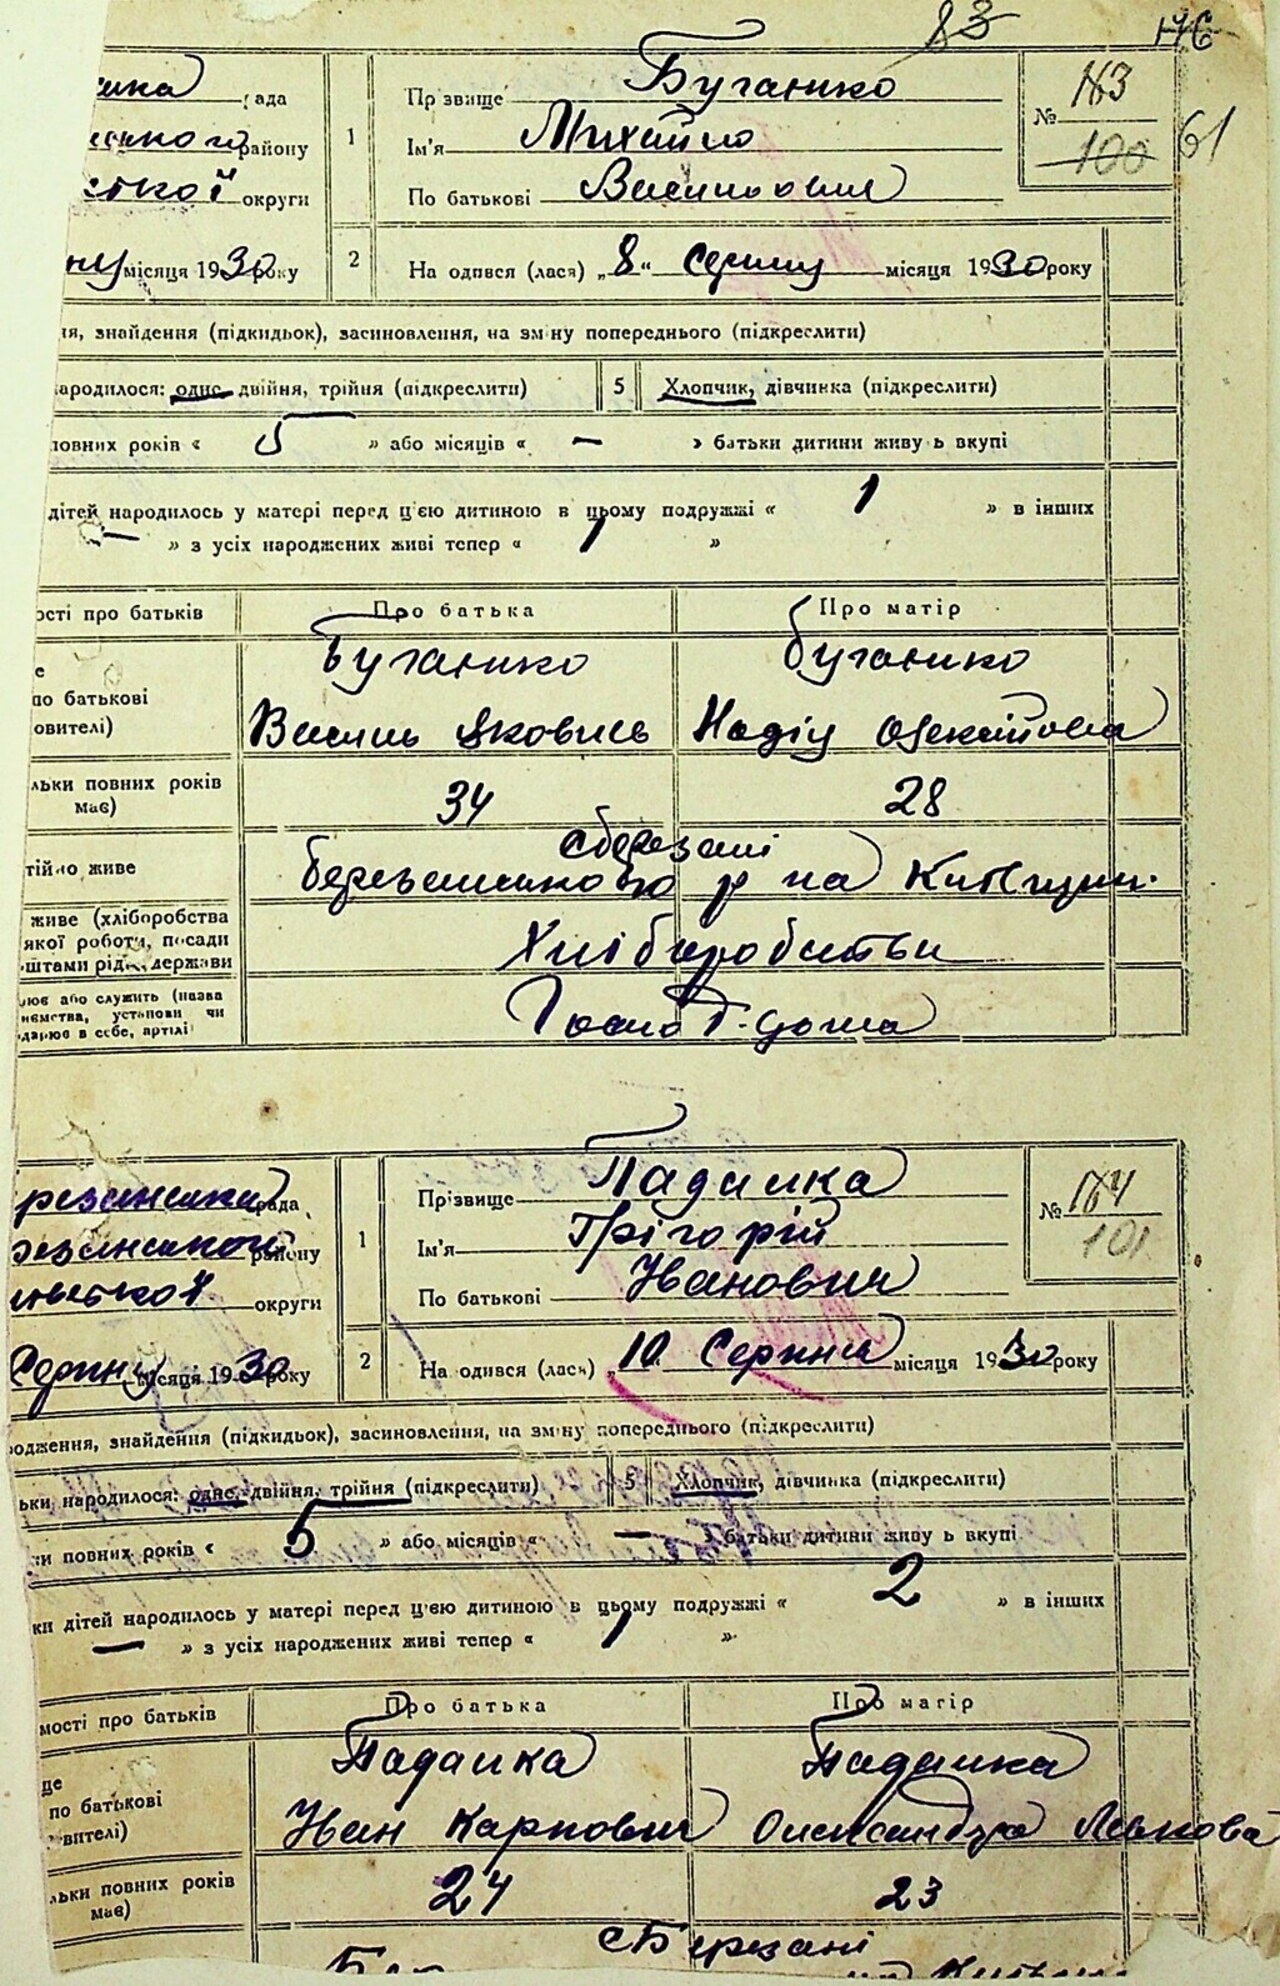 83 146
рада
району
округи
ну місяця 1930 року
1 Прізвище Буганико
Ім'я Михайло
По батькові Васильович
№ 183
100 61
2 На одився (лася) „8“ Серпня місяця 1930 року
ня, знайдення (підкидьок), засиновлення, на зміну попереднього (підкреслити)
ародилося: одне, двійня, трійня (підкреслити) 5 Хлопчик, дівчинка (підкреслити)
повних років « 5 » або місяців « — » батьки дитини живу ь вкупі
дітей народилось у матері перед цією дитиною в цьому подружжі « 1 » в інших
— » з усіх народжених живі тепер « 1 »
ості про батьків Про батька Про матір
е Буганико Буганико
по батькові
овителі) Василь Якович Надія
льки повних років має) 34 28
с Березані
тійно живе р на
живе (хліборобства
якої роботи, посади
штами рідні, держави Хліборобства
ює або служить (назва
иємства, установи чи
дарює в себе, артілі)
резанська рада
резанського району
округи
Серпня місяця 1930 року
1 Прізвище Падалка
Ім'я Грігорій
По батькові Іванович
№ 184
101
2 На одився (лася) „10“ Серпня місяця 1930 року
одження, знайдення (підкидьок), засиновлення, на зміну попереднього (підкреслити)
ьки народилося: одне, двійня, трійня (підкреслити) 5 Хлопчик, дівчинка (підкреслити)
ки повних років « 5 » або місяців « — » батьки дитини живу ь вкупі
ки дітей народилось у матері перед цією дитиною в цьому подружжі « 2 » в інших
— » з усіх народжених живі тепер « 1 »
мості про батьків Про батька Про матір
ще Падалка Падалка
по батькові
вителі) Іван Карпович Олександра Левкова
льки повних років має) 24 23
с Березані